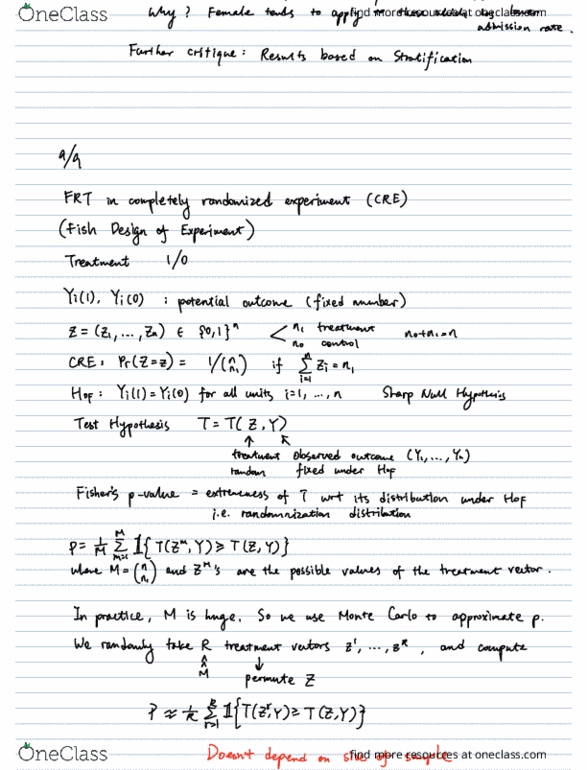 OneClass
Why? Female tends to apply find more resources at oneclass.com
admission rate.
Further critique: Results based on Stratification
9/9
FRT in completely randomized experiment (CRE)
(Fish Design of Experiment)
Treatment 1/0
Yi(1), Yi(0) : potential outcome (fixed number)
Z = (Z1, ..., Zn) ∈ {0,1}^n < n1 treatment n1+n0=n
n0 control
CRE: Pr(Z=z) = 1/(n n1) if Σ_{i=1}^n Zi = n1
H0F: Yi(1) = Yi(0) for all units i=1, ..., n Sharp Null Hypothesis
Test Hypothesis T = T(Z, Y)
↑ ↖
treatment observed outcome (Y1, ..., Yn)
random fixed under H0F
Fisher's p-value = extremeness of T wrt its distribution under H0F
i.e. randomnization distribution
P = 1/M Σ_{m=1}^M 1{T(Z^m, Y) ≥ T(Z, Y)}
where M = (n n1) and Z^m's are the possible values of the treatment vector.
In practice, M is huge. So we use Monte Carlo to approximate p.
We randomly take R treatment vectors z^1, ..., z^R, and compute
^ ↓
^
M permute Z
P ≈ 1/R Σ_{r=1}^R 1{T(Z^r, Y) ≥ T(Z, Y)}
OneClass
Doesn't depend on size of sample
find more resources at oneclass.com